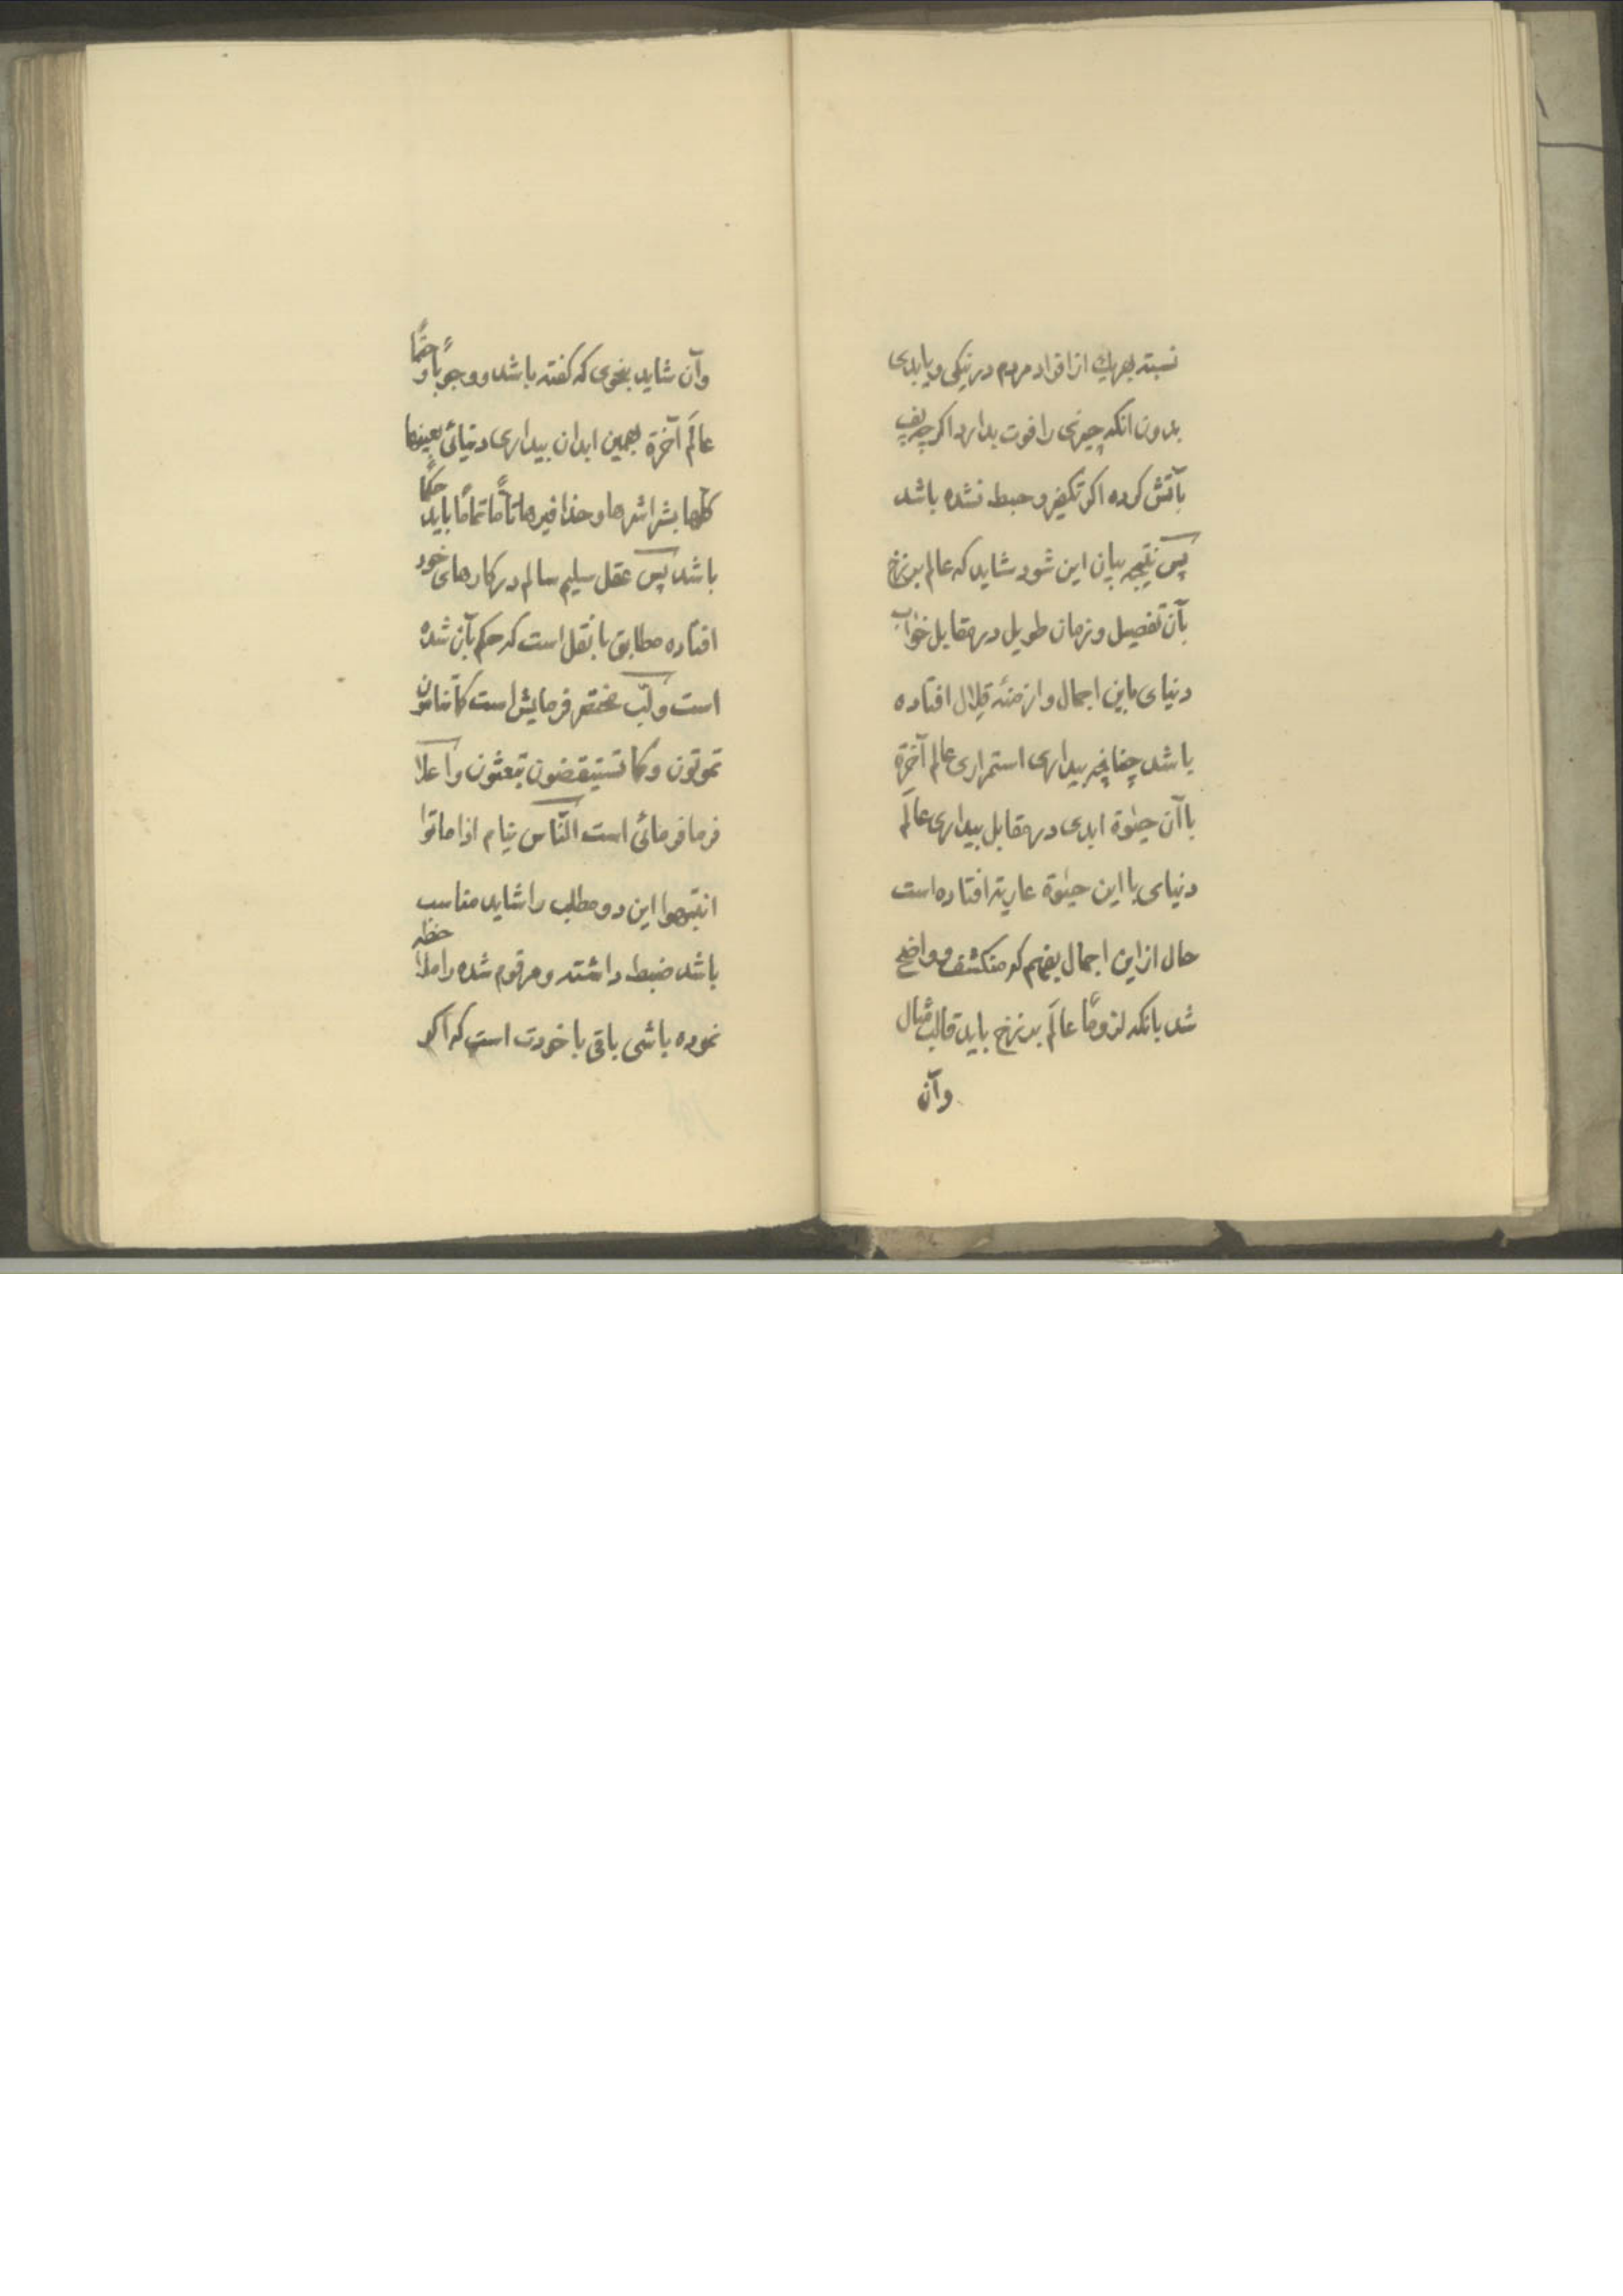 نسبته بهریك از افراد مردم در نیکی و یا بدی
بدون انکه چیزی را فوت بدارد اکر چه
باتش کرده اکر تکفیر و حبط نشده باشد
پس نتیجه بیان این شود شاید که عالم برزخ
بآن تفصیل و زمان طویل در مقابل خواب
دنیای باین اجمال و ازمنه قلال افتاده
باشد چنانچه بیداری استمراری عالم آخرة
با آن حیٰوة ابدی در مقابل بیداری عالَم
دنیای با این حیٰوة عاریة افتاده است
حال از این اجمال بفهم که منکشف و واضح
شد بانکه لزومًا عالَم برزخ باید قالب مثال
وآن
وآن شاید بنحوی که کفته باشد و وجوبًا و حتمًا
عالَم آخرة بهمین ابدان بیداری دنیائی بعینها
کلّها بشراشرها و حذافیرها تامًا تمامًا باید حکمًا
باشد پس عقل سلیم سالم در کارهای خود
افتاده مطابق با نقل است که حکم بآن شده
است و لبّ مختصر فرمایش است کما تنامون
تموتون و کما تستیقضون تبعثون و اعلا
فرما فرمائی است النّاس نیام اذا ماتوا
انتبهوا این دو مطلب را شاید مناسب
باشد ضبط داشته و مرقوم شده را ملا حظه
نموده باشی باقی با خودت است که اکر